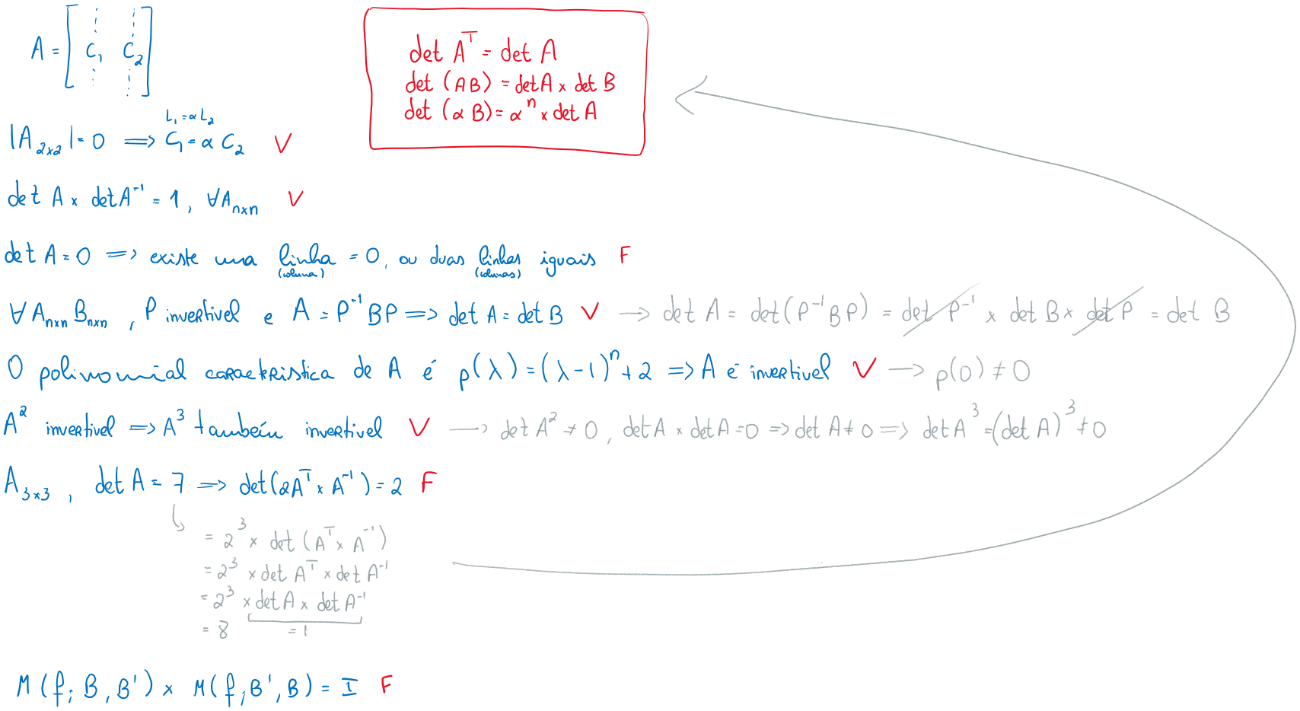 A = [ C₁ C₂ ]
det Aᵀ = det A
det (AB) = det A × det B
det (α B) = αⁿ × det A
L₁ = α L₂
|A₂ₓ₂| = 0 ⟹ C₁ = α C₂ V
det A × det A⁻¹ = 1, ∀Aₙₓₙ V
det A = 0 ⟹ existe uma linha = 0, ou duas linhas iguais F
(coluna) (colunas)
∀ Aₙₓₙ Bₙₓₙ, P invertivel e A = P⁻¹BP ⟹ det A = det B V → det A = det(P⁻¹BP) = det P⁻¹ × det B × det P = det B
O polinomial caracteristica de A é p(λ) = (λ-1)ⁿ + 2 ⟹ A é invertivel V → p(0) ≠ 0
A² invertivel ⟹ A³ também invertivel V → det A² ≠ 0, det A × det A = 0 ⟹ det A ≠ 0 ⟹ det A³ = (det A)³ ≠ 0
A₃ₓ₃, det A = 7 ⟹ det(2Aᵀ × A⁻¹) = 2 F
= 2³ × det (Aᵀ × A⁻¹)
= 2³ × det Aᵀ × det A⁻¹
= 2³ × det A × det A⁻¹
= 8 = 1
M(f; B, B') × M(f; B', B) = I F